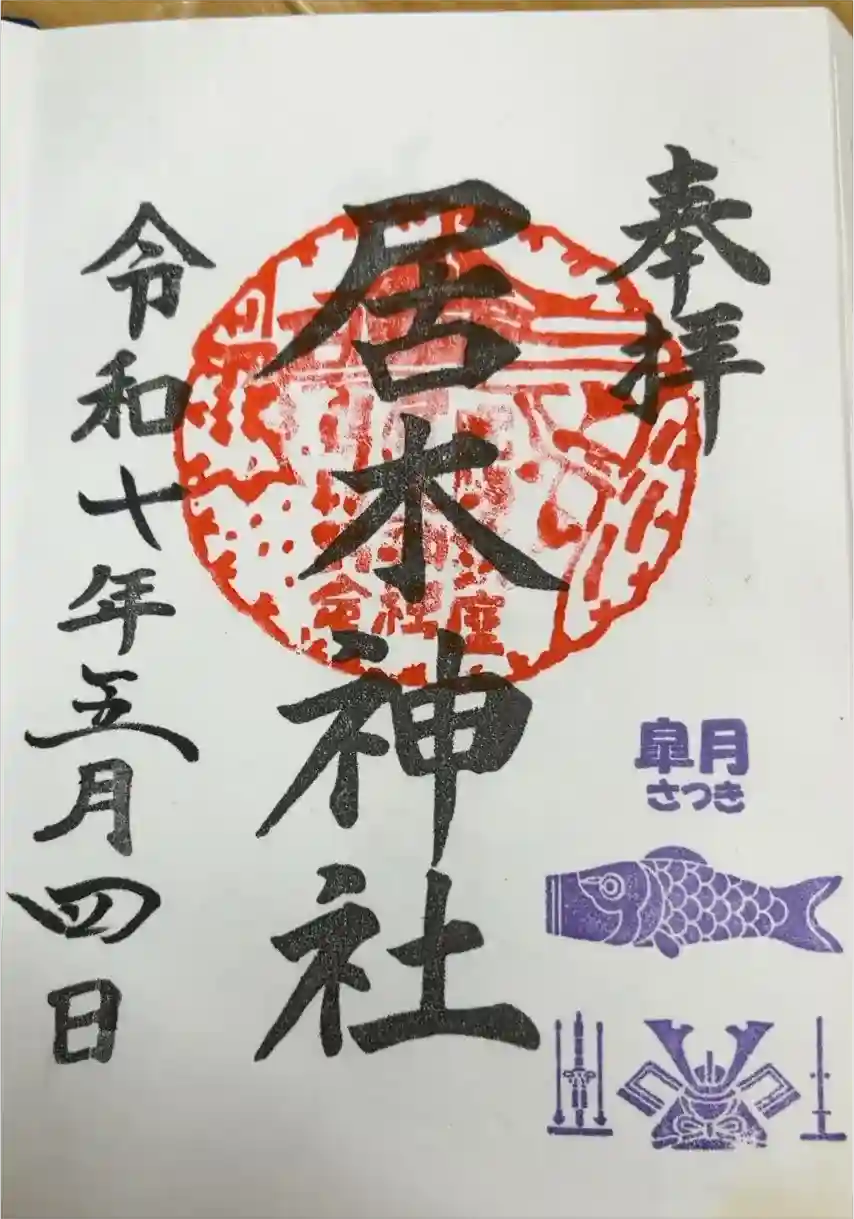 奉拝
居木神社
令和十年五月四日
皐月
さつき